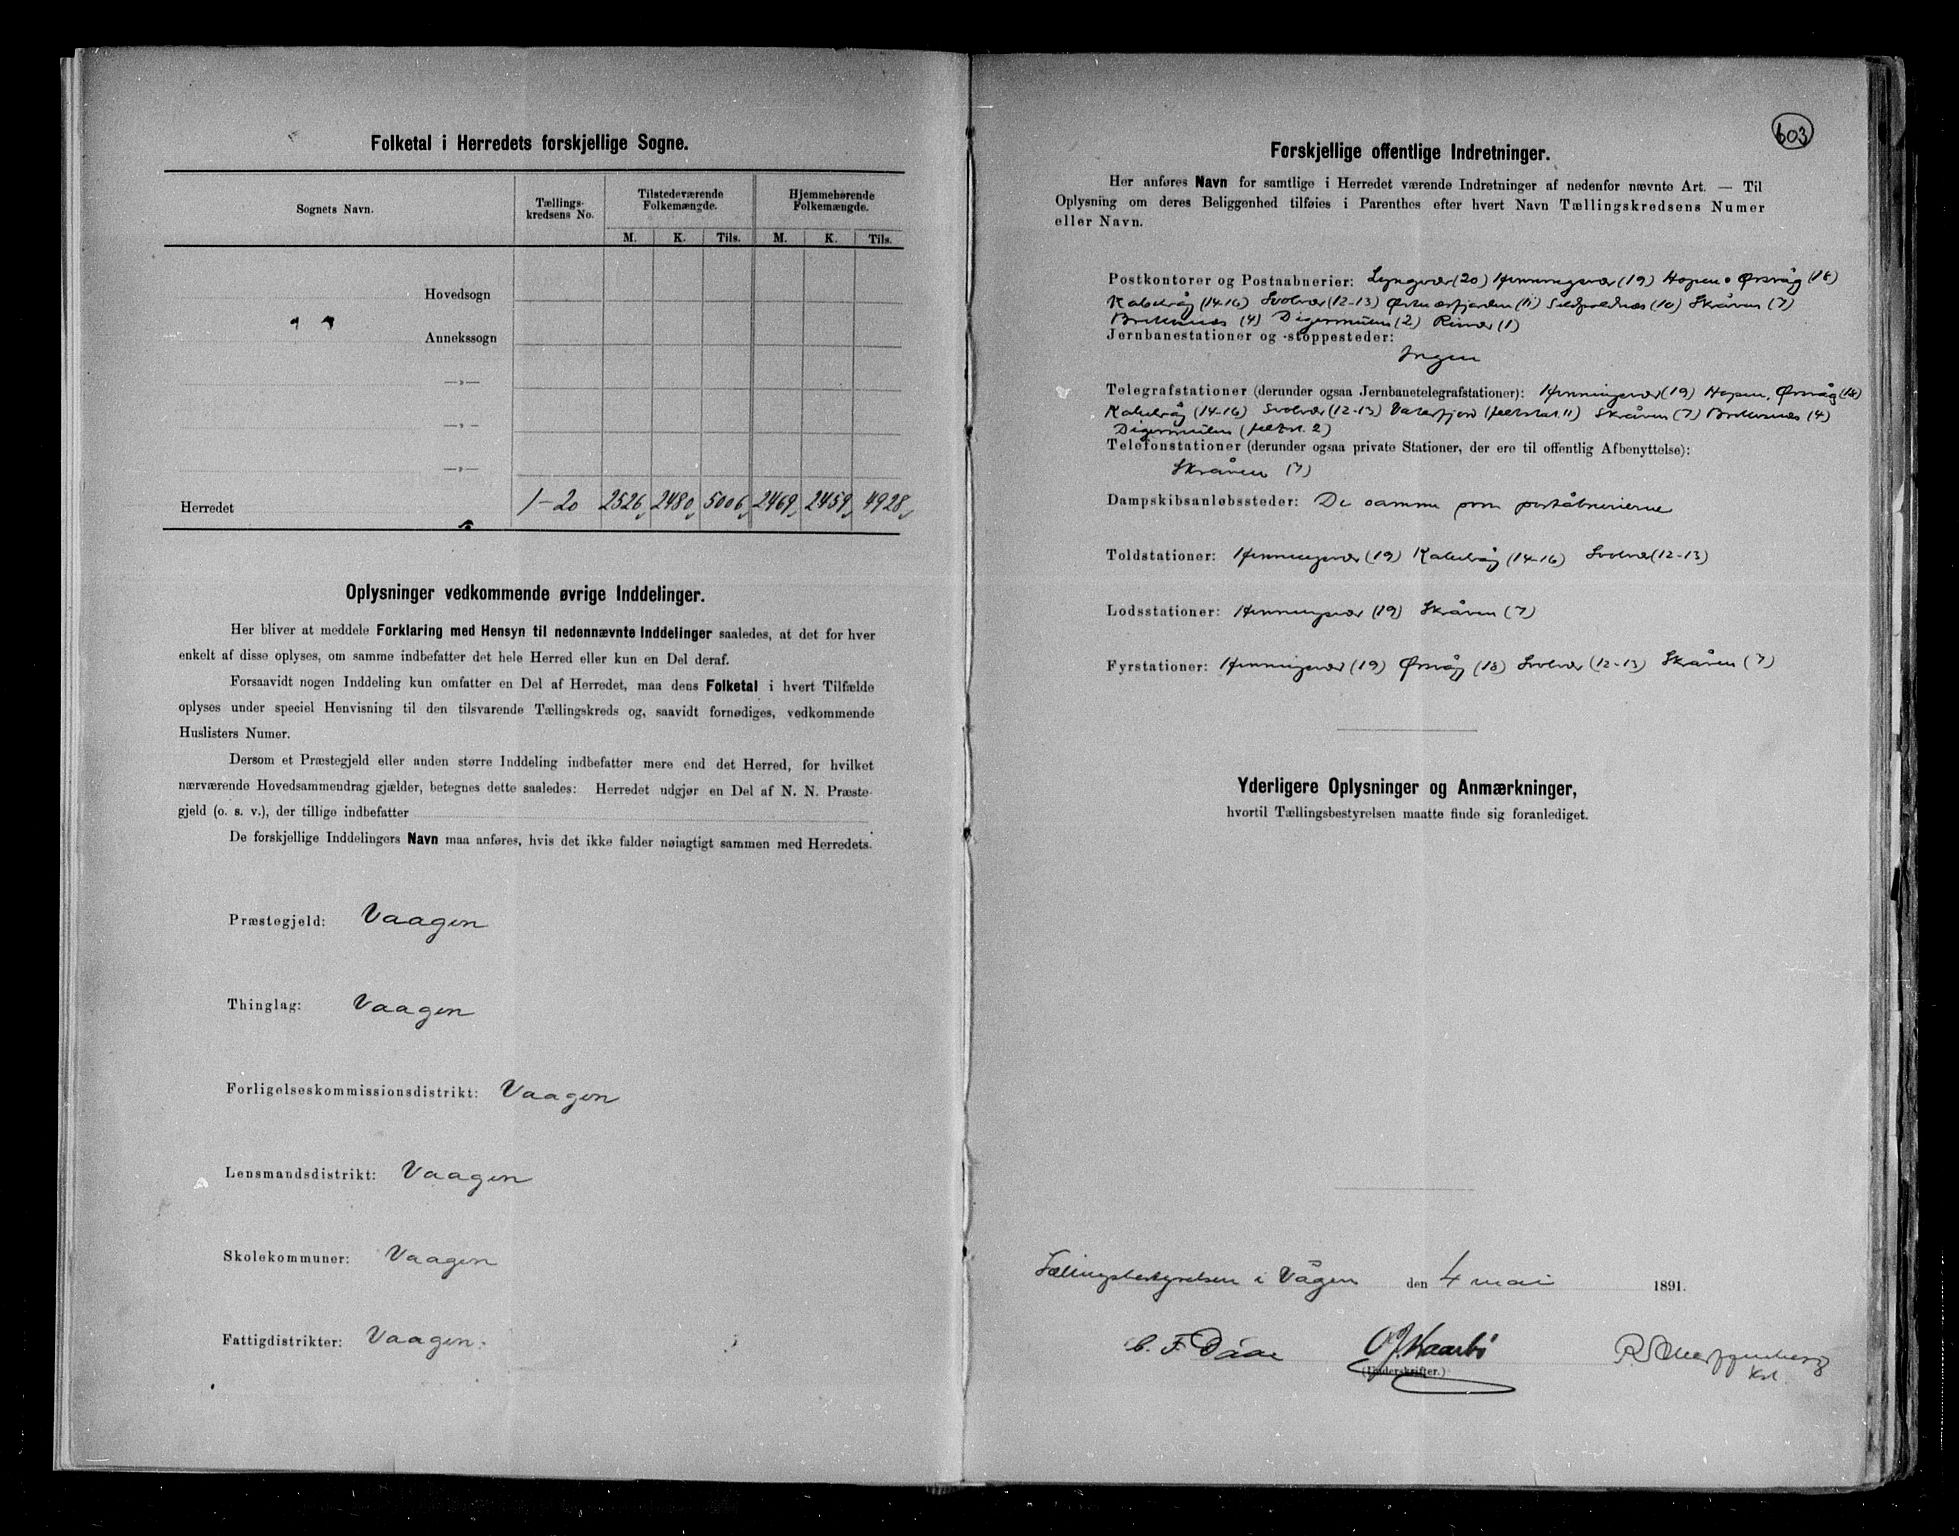 Folketal i Herredets forskjellige Sogne.
Sognets Navn.
Tællings-
kredsens No.
Tilstedeværende
Folkemængde.
Hjemmehørende
Folkemængde.
M. K. Tils. M. K. Tils.
Hovedsogn
Annekssogn
—„—
—„—
—„—
Herredet 1-20 2526 2480 5006 2469 2459 4928
Oplysninger vedkommende øvrige Inddelinger.
Her bliver at meddele Forklaring med Hensyn til nedennævnte Inddelinger saaledes, at det for hver
enkelt af disse oplyses, om samme indbefatter det hele Herred eller kun en Del deraf.
Forsaavidt nogen Inddeling kun omfatter en Del af Herredet, maa dens Folketal i hvert Tilfælde
oplyses under speciel Henvisning til den tilsvarende Tællingskreds og, saavidt fornødiges, vedkommende
Huslisters Numer.
Dersom et Præstegjeld eller anden større Inddeling indbefatter mere end det Herred, for hvilket
nærværende Hovedsammendrag gjælder, betegnes dette saaledes: Herredet udgjør en Del af N. N. Præste-
gjeld (o. s. v.), der tillige indbefatter
De forskjellige Inddelingers Navn maa anføres, hvis det ikke falder nøiagtigt sammen med Herredets.
Præstegjeld: Vaagen
Thinglag: Vaagen
Forligelseskommissionsdistrikt: Vaagen
Lensmandsdistrikt: Vaagen
Skolekommuner: Vaagen
Fattigdistrikter: Vaagen.
603
Forskjellige offentlige Indretninger.
Her anføres Navn for samtlige i Herredet værende Indretninger af nedenfor nævnte Art. — Til
Oplysning om deres Beliggenhed tilføies i Parenthes efter hvert Navn Tællingskredsens Numer
eller Navn.
Postkontorer og Postaabnerier: Lyngvær (20) Henningsvær (19) Hopen o Ørsvåg (18)
Kabelvåg (14-16) Svolvær (12-13) Østnæsfjorden (11) Sildpoldnæs (10) Skråven (7)
Brettesnæs (4) Digermulen (2) Risvær (1)
Jernbanestationer og -stoppesteder:
Ingen
Telegrafstationer (derunder ogsaa Jernbanetelegrafstationer): Henningsvær (19) Hopen, Ørsvåg (18)
Kabelvåg (14-16) Svolvær (12-13) Vaterfjord (feltstat. 11) Skråven (7) Brettesnæs (4)
Digermulen (feltst. 2)
Telefonstationer (derunder ogsaa private Stationer, der ere til offentlig Afbenyttelse):
Skråven (7)
Dampskibsanløbssteder: De samme som poståbnerierne
Toldstationer: Henningsvær (19) Kabelvåg (14-16) Svolvær (12-13)
Lodsstationer: Henningsvær (19) Skråven (7)
Fyrstationer: Henningsvær (19) Ørsvåg (18) Svolvær (12-13) Skråven (7)
Yderligere Oplysninger og Anmærkninger,
hvortil Tællingsbestyrelsen maatte finde sig foranlediget.
Tællingsbestyrelsen i Vågen den 4 mai 1891.
C. F. Daae O J Kaarbø
(Underskrifter.)